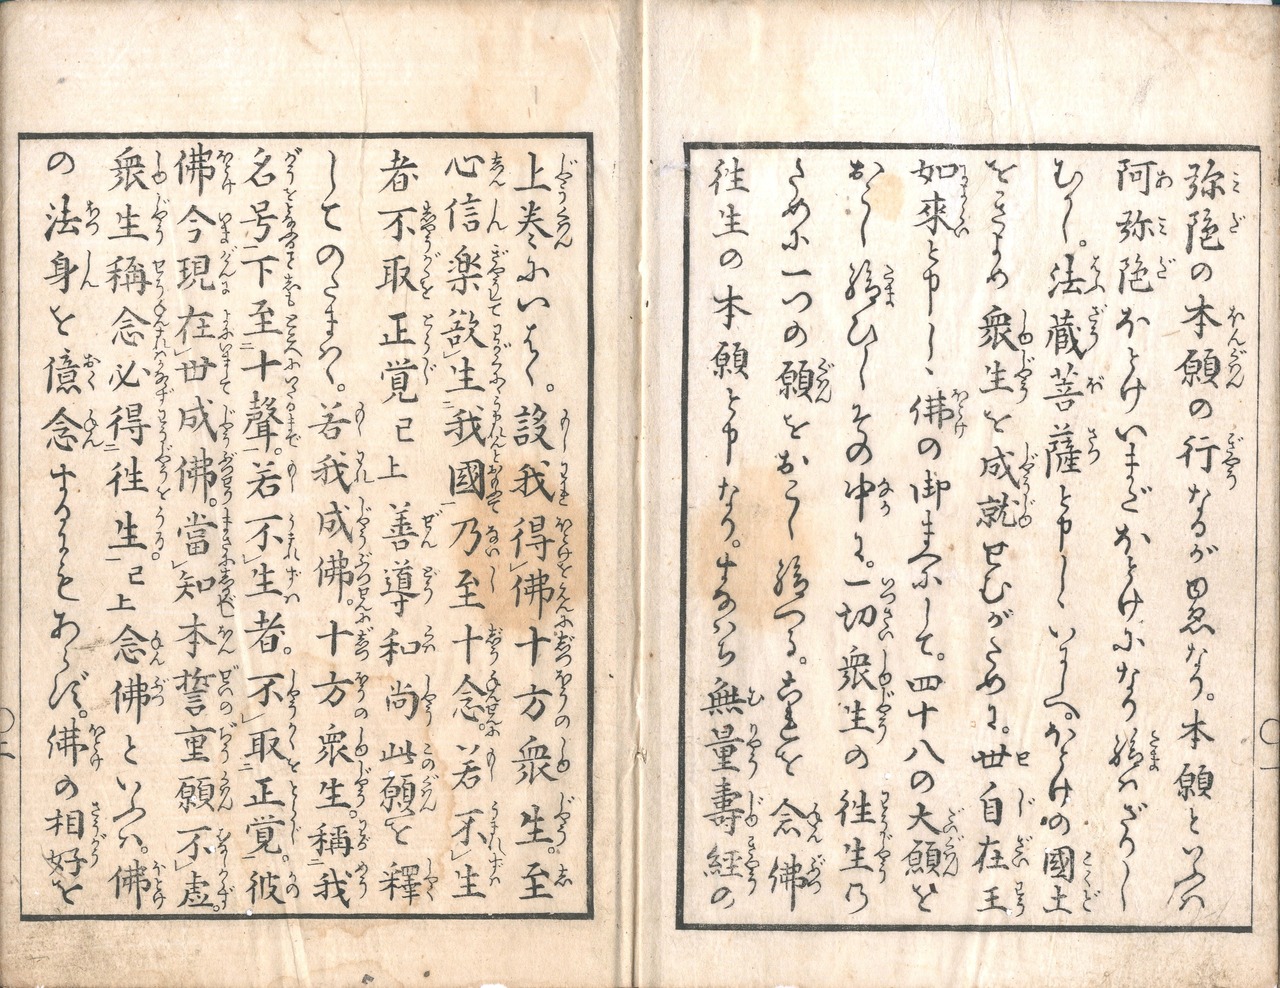 弥陀の本願の行なるが由恵なり。本願といふハ
阿弥陀ほとけいまだほとけになり給ハざりし
むかし。法蔵菩薩と申しゝいにしへ。ほとけの國土
をきよめ衆生を成就せむがために。世自在王
如來と申しゝ佛の御まへにして。四十八の大願を
おこし給ひしその中に。一切衆生の往生の
ために一つの願をおこし給へる。これを念佛
往生の本願と申なり。すなハち無量壽經の
上巻にいはく。設我得佛十方衆生。至
心信楽欲生我國乃至十念。若不生
者不取正覚已上善導和尚此願を釋
してのたまハく。若我成佛。十方衆生。稱我
名号下至十聲。若不生者。不取正覚。彼
佛今現在世成佛。當知本誓重願不虚
衆生稱念必得往生已上念佛といふハ。佛
の法身を億念するにもあらず。佛の相好を